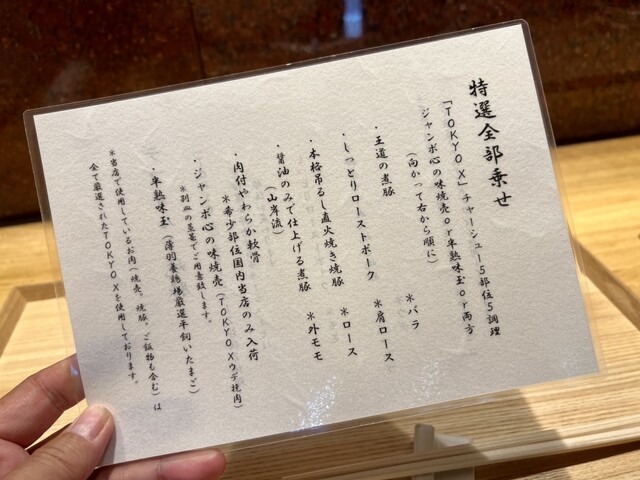 特選全部乗せ
「TOKYO X」チャーシュー5部位5調理
ジャンボ心の味焼売or半熟味玉or両方
(向かって右から順に)
・王道の煮豚 ＊バラ
・しっとりローストポーク ＊肩ロース
・本格吊るし直火焼き焼豚 ＊ロース
・醤油のみで仕上げる煮豚 ＊外モモ
(山岸流)
・肉付やわらか軟骨
＊希少部位国内当店のみ入荷
・ジャンボ心の味焼売(TOKYO Xウデ挽肉)
＊別皿の蒸篭でご用意致します。
・半熟味玉(薄羽養鶏場厳選平飼いたまご)
＊当店で使用しているお肉(焼売、焼豚、ご飯物も含む)は
全て厳選されたTOKYO Xを使用しております。